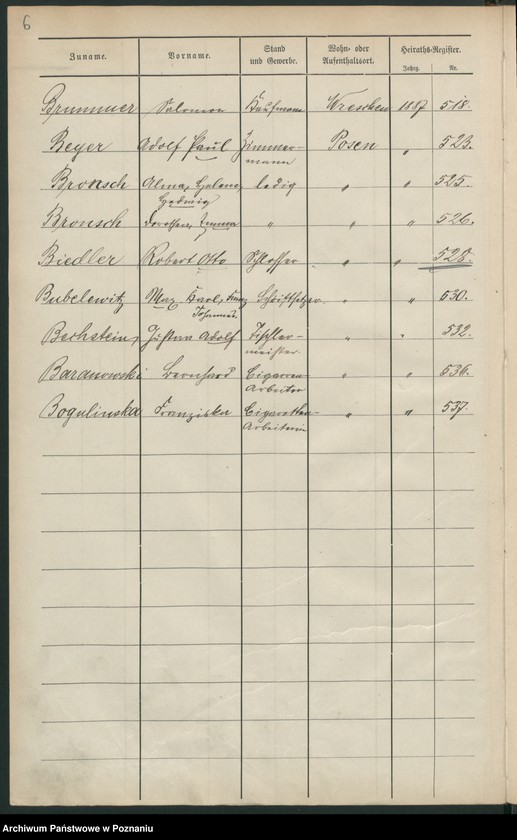 6
Zuname. Vorname. Stand und Gewerbe. Wohn- oder Aufenthaltsort. Heiraths-Register.
Jahrg. Nr.
Brummer Salomon Kaufmann Wreschen 1887 518.
Beyer Adolf Paul Zimmer- Posen " 523.
mann
Bronsch Alma, Helene, ledig " " 525.
Hedwig
Bronsch Dorothea, Emma " " " 526.
Biedler Robert Otto Schlosser " " 528.
Bubelewitz Max Karl, Franz Schriftsetzer " " 530.
Johannes
Bechstein, Gustav Adolf Tischler- " " 532.
meister
Baranowski Bernhard Cigarren- " " 536.
Arbeiter
Bogulinska Franziska Cigaretten- " " 537.
Arbeiterin
Archiwum Państwowe w Poznaniu